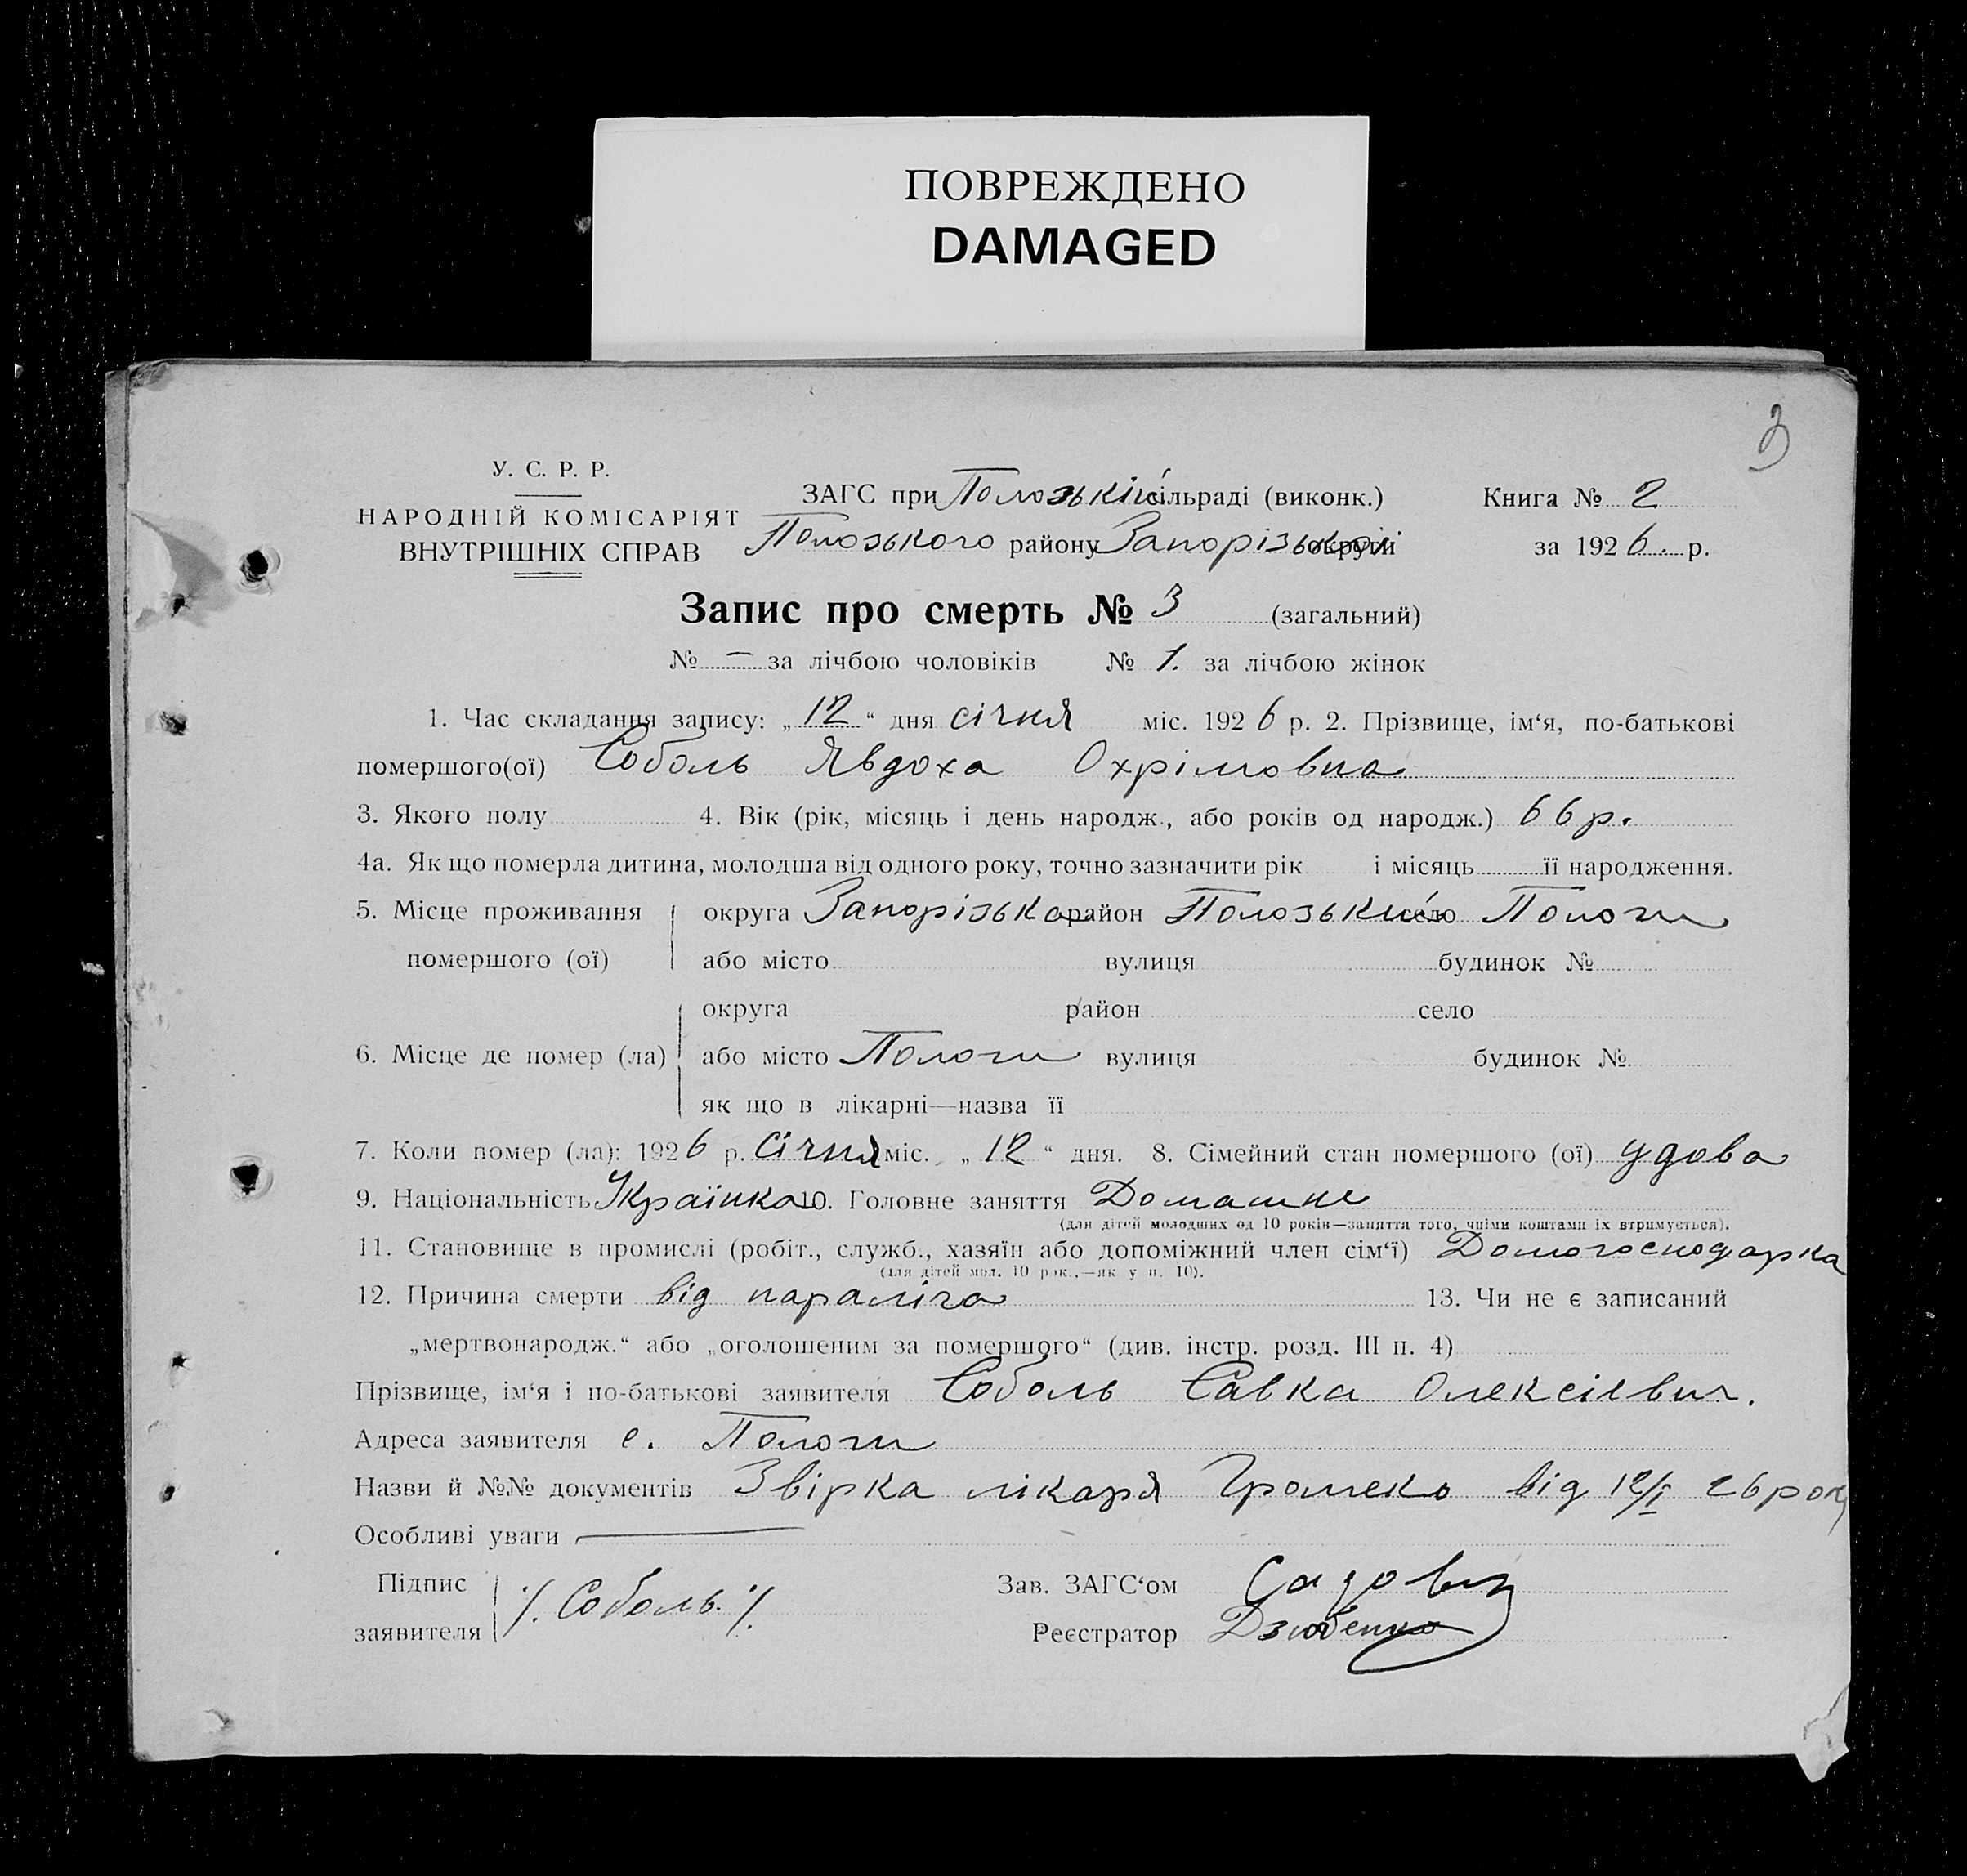 ПОВРЕЖДЕНО
DAMAGED
3
У. С. Р. Р.
НАРОДНІЙ КОМІСАРІЯТ
ВНУТРІШНІХ СПРАВ
ЗАГС при Полозькій сільраді (виконк.)
Полозького району Запорізької округи
Книга № 2
за 1926. р.
Запис про смерть № 3 (загальний)
№ — за лічбою чоловіків № 1. за лічбою жінок
1. Час складання запису: „12“ дня січня міс. 1926 р. 2. Прізвище, ім‘я, по-батькові
помершого(ої) Соболь Явдоха Охрімовна
3. Якого полу 4. Вік (рік, місяць і день народж., або років од народж.) 66 р.
4а. Як що померла дитина, молодша від одного року, точно зазначити рік і місяць її народження.
5. Місце проживання помершого (ої) округа Запорізька район Полозький село Пологи
або місто вулиця будинок №
6. Місце де помер (ла) округа район село
або місто Пологи вулиця будинок №
як що в лікарні—назва її
7. Коли помер (ла): 1926 р. січня міс. „12“ дня. 8. Сімейний стан помершого (ої) удова
9. Національність Українка 10. Головне заняття Домашне
(для дітей молодших од 10 років—заняття того, чиїми коштами їх втримується).
11. Становище в промислі (робіт., служб., хазяїн або допоміжний член сім‘ї) Домогосподарка
(для дітей мол. 10 рок.,—як у п. 10).
12. Причина смерти від параліча 13. Чи не є записаний
„мертвонародж.“ або „оголошеним за помершого“ (див. інстр. розд. III п. 4)
Прізвище, ім‘я і по-батькові заявителя Соболь Савка Олексієвич.
Адреса заявителя с. Пологи
Назви й №№ документів Звірка лікаря Громеко від 12/I 26 року
Особливі уваги —
Підпис заявителя /. Соболь. /.
Зав. ЗАГС‘ом Садовий
Реєстратор Дзюбенко